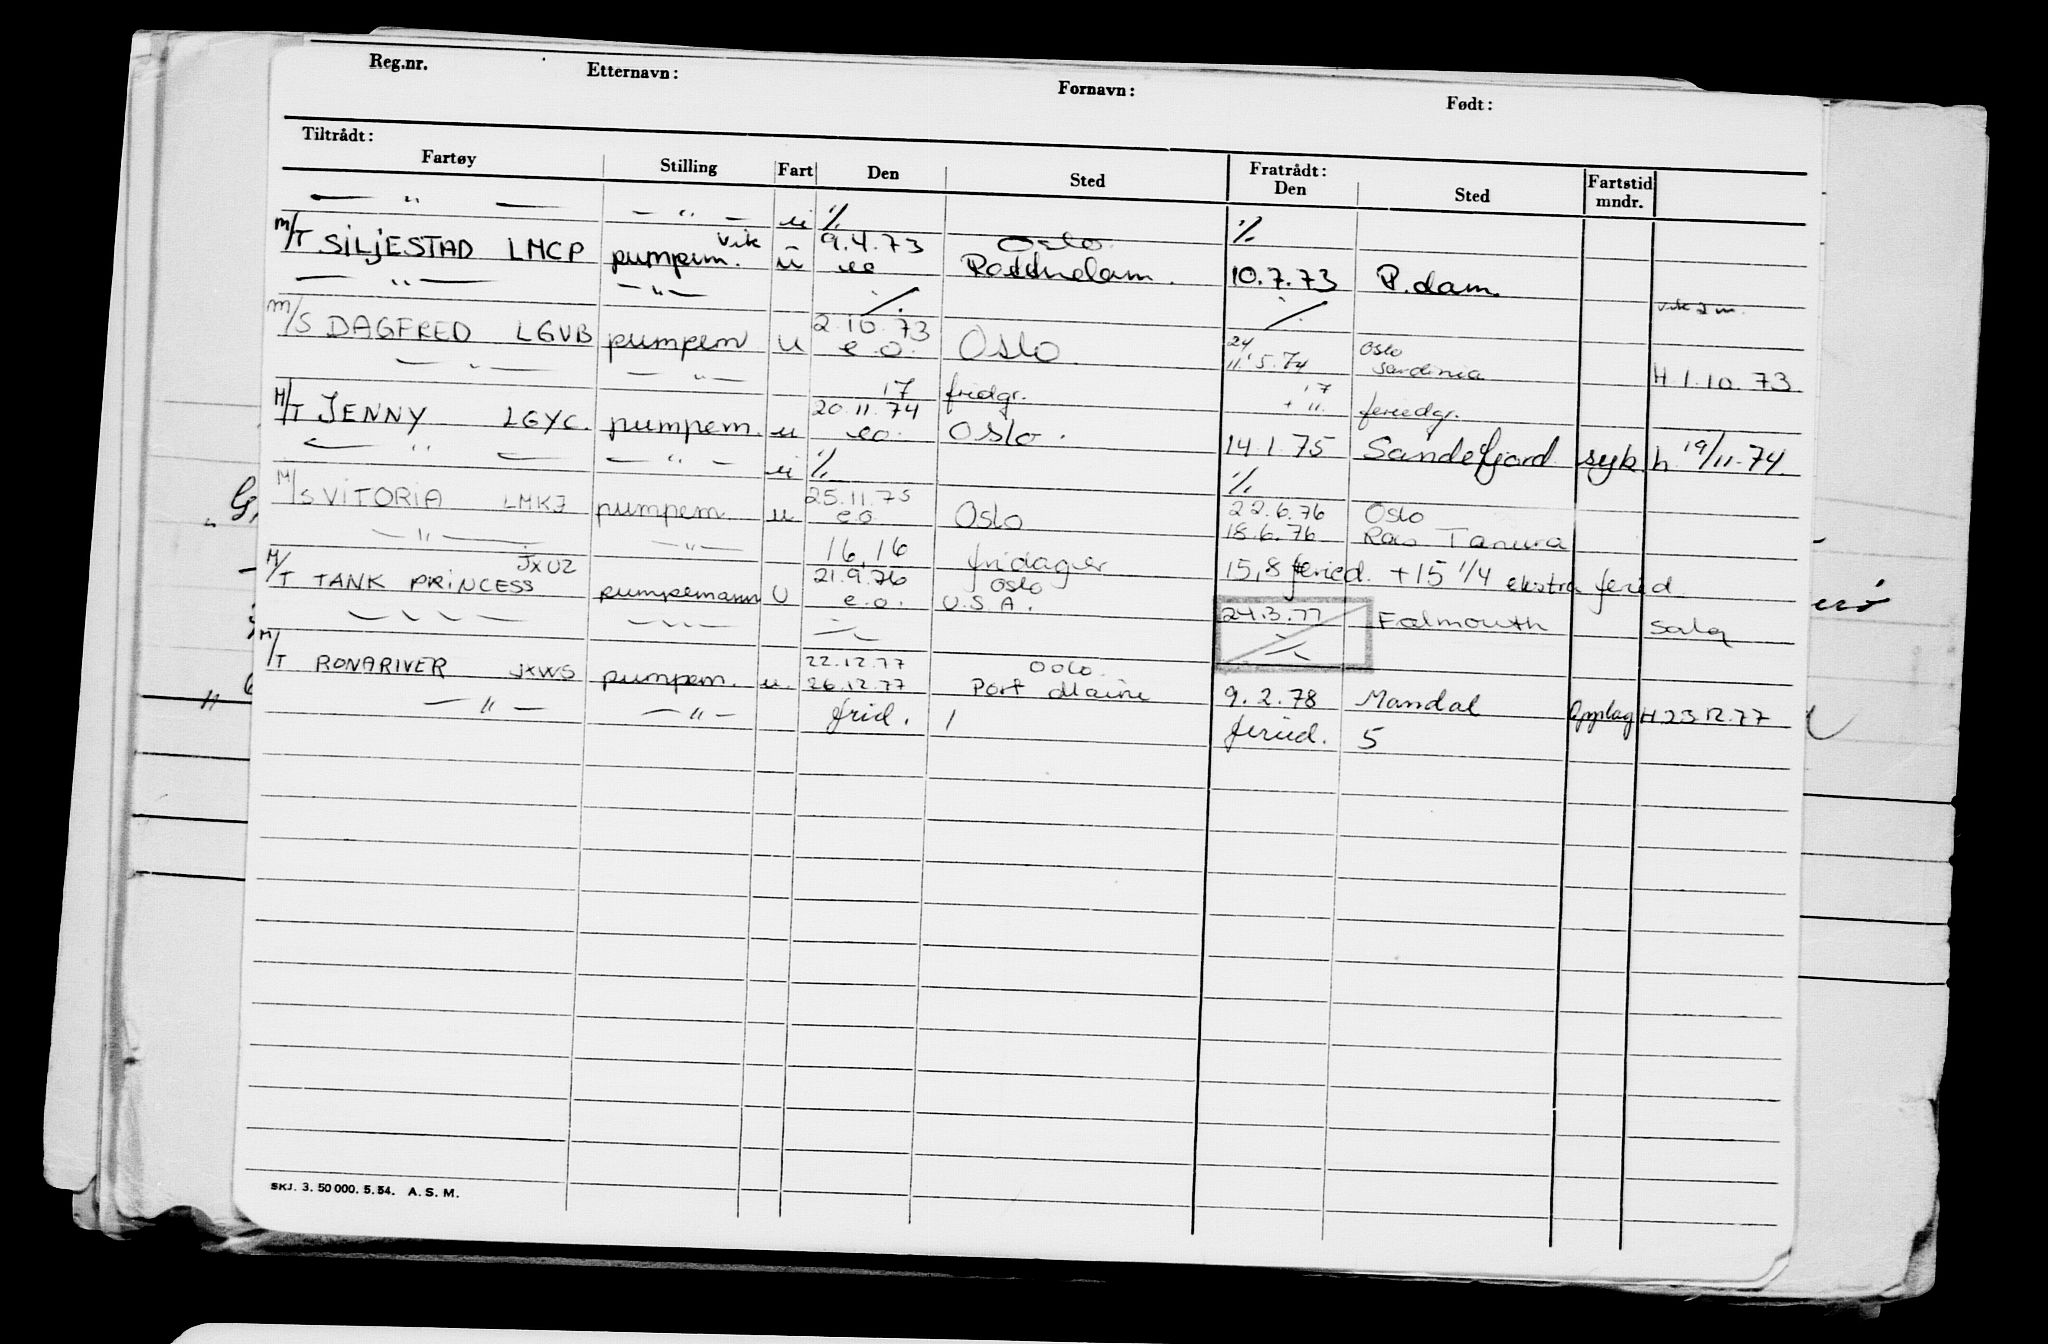 Reg.nr. Etternavn: Fornavn: Født:
Tiltrådt: Fratrådt:
Fartøy Stilling Fart Den Sted Den Sted Fartstid mndr.
— " — — " — u ٪ ٪
vik 9.4.73 Oslo
M/T SILJESTAD LMCP pumpem. u eo Rotterdam. 10.7.73 R.dam.
— " — — " — ⁒ ⁒ vik 2 m.
2.10.73 24 Oslo
M/S DAGFRED LGVB pumpem u e.o. Oslo 11.5.74 Sardinia H 1.10.73
— " — — " — 17 fridgr. 17 + 11 feriedgr.
20.11.74
M/T JENNY LGYC. pumpem. u eo. Oslo. 14.1.75 Sandefjord syk h 19/11.74.
— " — — " — u ٪ ٪
25.11.75 22.6.76 Oslo
M/S VITORIA LMKJ pumpem u e.o. Oslo 18.6.76 Ras Tanura
— " — — " — 16,16 fridager 15,8 feried. +15 1/4 ekstra feried.
JXUZ 21.9.76 Oslo
M/T TANK PRINCESS pumpemann U e.o. U.S.A. 24.3.77 Falmouth salg
— " — — " — ⁒ ⁒
22.12.77 Oslo.
M/T RONARIVER JXWS pumpem. u. 26.12.77 Port 9.2.78 Mandal Opplag H 23.12.77
— " — — " — frid. 1 feried. 5
SKJ. 3. 50 000. 5.54. A. S. M.